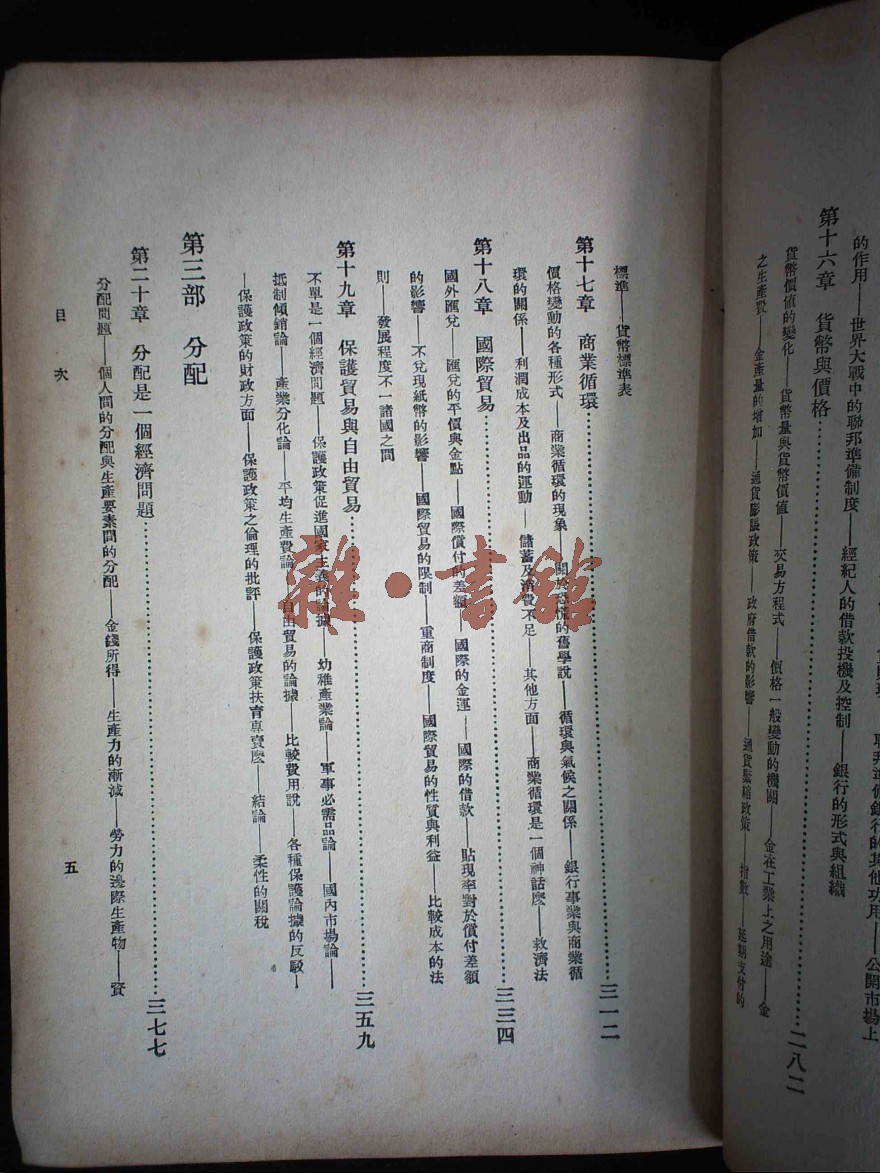 的作用——世界大戰中的聯邦準備制度——經紀人的借款投機及控制——銀行的形式與組織
第十六章 貨幣與價格……二八二
貨幣價值的變化——貨幣量與貨幣價值——交易方程式——價格一般變動的機關——金在工業上之用途——金
之生產費——金產量的增加——通貨膨脹政策——政府借款的影響——通貨緊縮政策——指數——延期支付的
標準——貨幣標準表
第十七章 商業循環……三一二
價格變動的各種形式——商業循環的現象——關於恐慌的舊學說——循環與氣候之關係——銀行事業與商業循
環的關係——利潤成本及出品的運動——儲蓄及消費不足——其他方面——商業循環是一個神話麼——救濟法
第十八章 國際貿易……三三四
國外匯兌——匯兌的平價與金點——國際償付的差額——國際的金運——國際的借款——貼現率對於償付差額
的影響——不兌現紙幣的影響——國際貿易的限制——重商制度——國際貿易的性質與利益——比較成本的法
則——發展程度不一諸國之間
第十九章 保護貿易與自由貿易……三五九
不單是一個經濟問題——保護政策促進國家主義的論據——幼稚產業論——軍事必需品論——國內市場論——
抵制傾銷論——產業分化論——平均生產費論——自由貿易的論據——比較費用說——各種保護論據的反駁—
—保護政策的財政方面——保護政策之倫理的批評——保護政策扶育專賣麼——結論——柔性的關稅
第三部 分配
第二十章 分配是一個經濟問題……三七七
分配問題——個人間的分配與生產要素間的分配——金錢所得——生產力的漸減——勞力的邊際生產物——資
目次
五
雜·書館